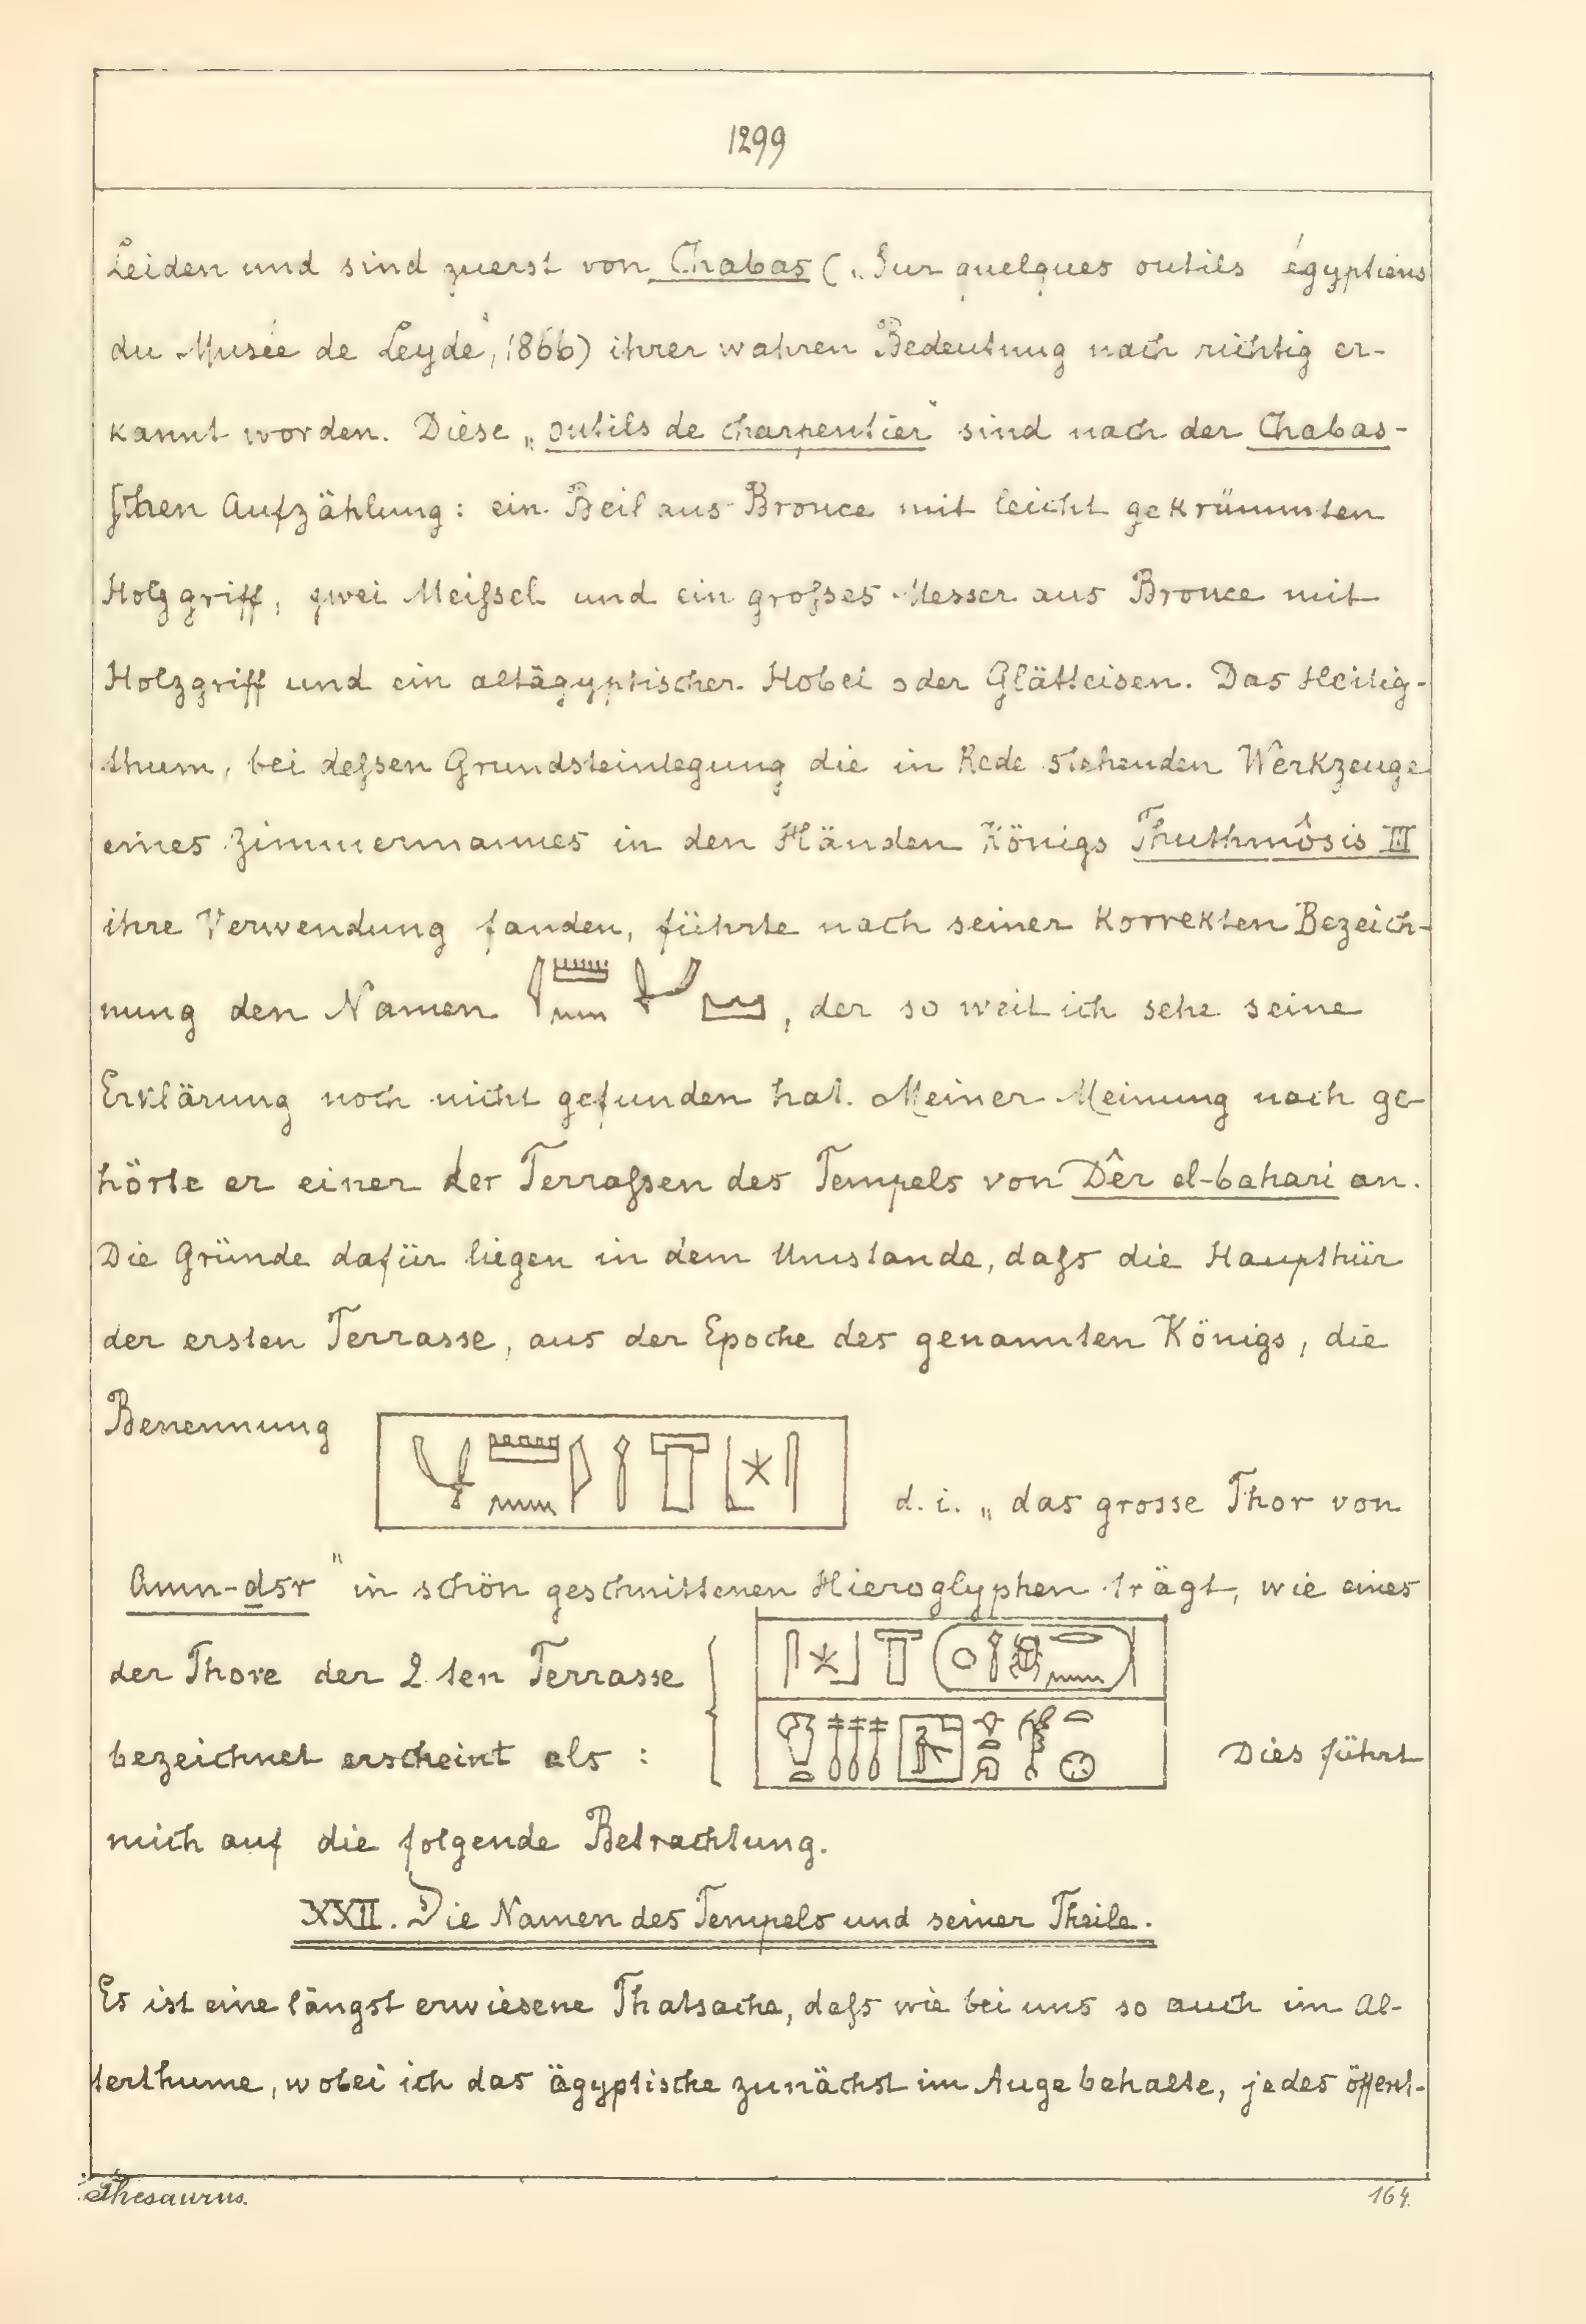 1299
Leiden und sind zuerst von Chabas („Sur quelques outils égyptiens
du Musée de Leyde“, 1866) ihrer wahren Bedeutung nach richtig er-
kannt worden. Diese „outils de charpentier“ sind nach der Chabas-
ſchen Aufzählung: ein Beil aus Bronce mit leicht gekrümmten
Holzgriff, zwei Meiſsel und ein groſses Messer aus Bronce mit
Holzgriff und ein altägyptischer Hobel oder Glätteisen. Das Heilig-
thum, bei deſsen Grundsteinlegung die in Rede stehenden Werkzeuge
eines Zimmermannes in den Händen Königs Thuthmôsis III
ihre Verwendung fanden, führte nach seiner korrekten Bezeich-
nung den Namen 𓇋𓏠𓈖𓂦, der so weit ich sehe seine
Erklärung noch nicht gefunden hat. Meiner Meinung nach ge-
hörte er einer der Terraſsen des Tempels von Dêr el-bahari an.
Die Gründe dafür liegen in dem Umstande, daſs die Hauptthür
der ersten Terrasse, aus der Epoche des genannten Königs, die
Benennung d. i. „das grosse Thor von
Amn-ḏsr“ in schön geschnittenen Hieroglyphen trägt, wie eines
der Thore der 2ten Terrasse
bezeichnet erscheint als : Dies führt
mich auf die folgende Betrachtung.
XXII. Die Namen des Tempels und seiner Theile.
Es ist eine längst erwiesene Thatsache, daſs wie bei uns so auch im Al-
terthume, wobei ich das ägyptische zunächst im Auge behalte, jedes öffent-
Thesaurus. 164.